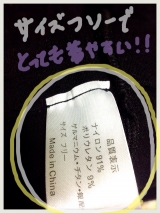 サイズフリーで
とっても着やすい!!
品質表示
ナイロン 91%
ポリウレタン 9%
ゲルマニウム・チタン・
サイズ フリー
Made in China